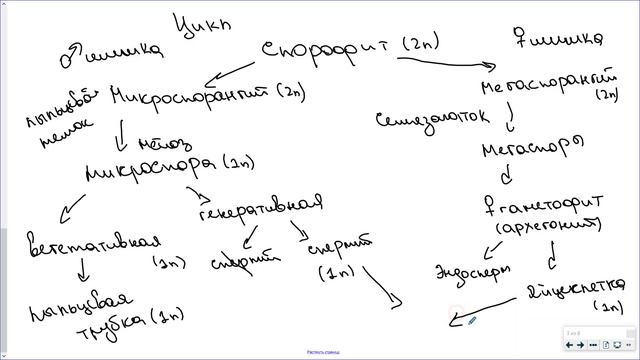 Цикл
♂ шишка
Спорофит (2n)
♀ шишка
пыльцевой
мешок
Микроспорангий (2n)
Мегаспорангий
(2n)
Семязачаток
мейоз
микроспора (1n)
Мегаспоры
генеративная
♀ гаметофит
(архегоний)
Вегетативная
(1n)
спермий
спермий
(1n)
Эндосперм
Яйцеклетка
(1n)
Пыльцевая
трубка (1n)